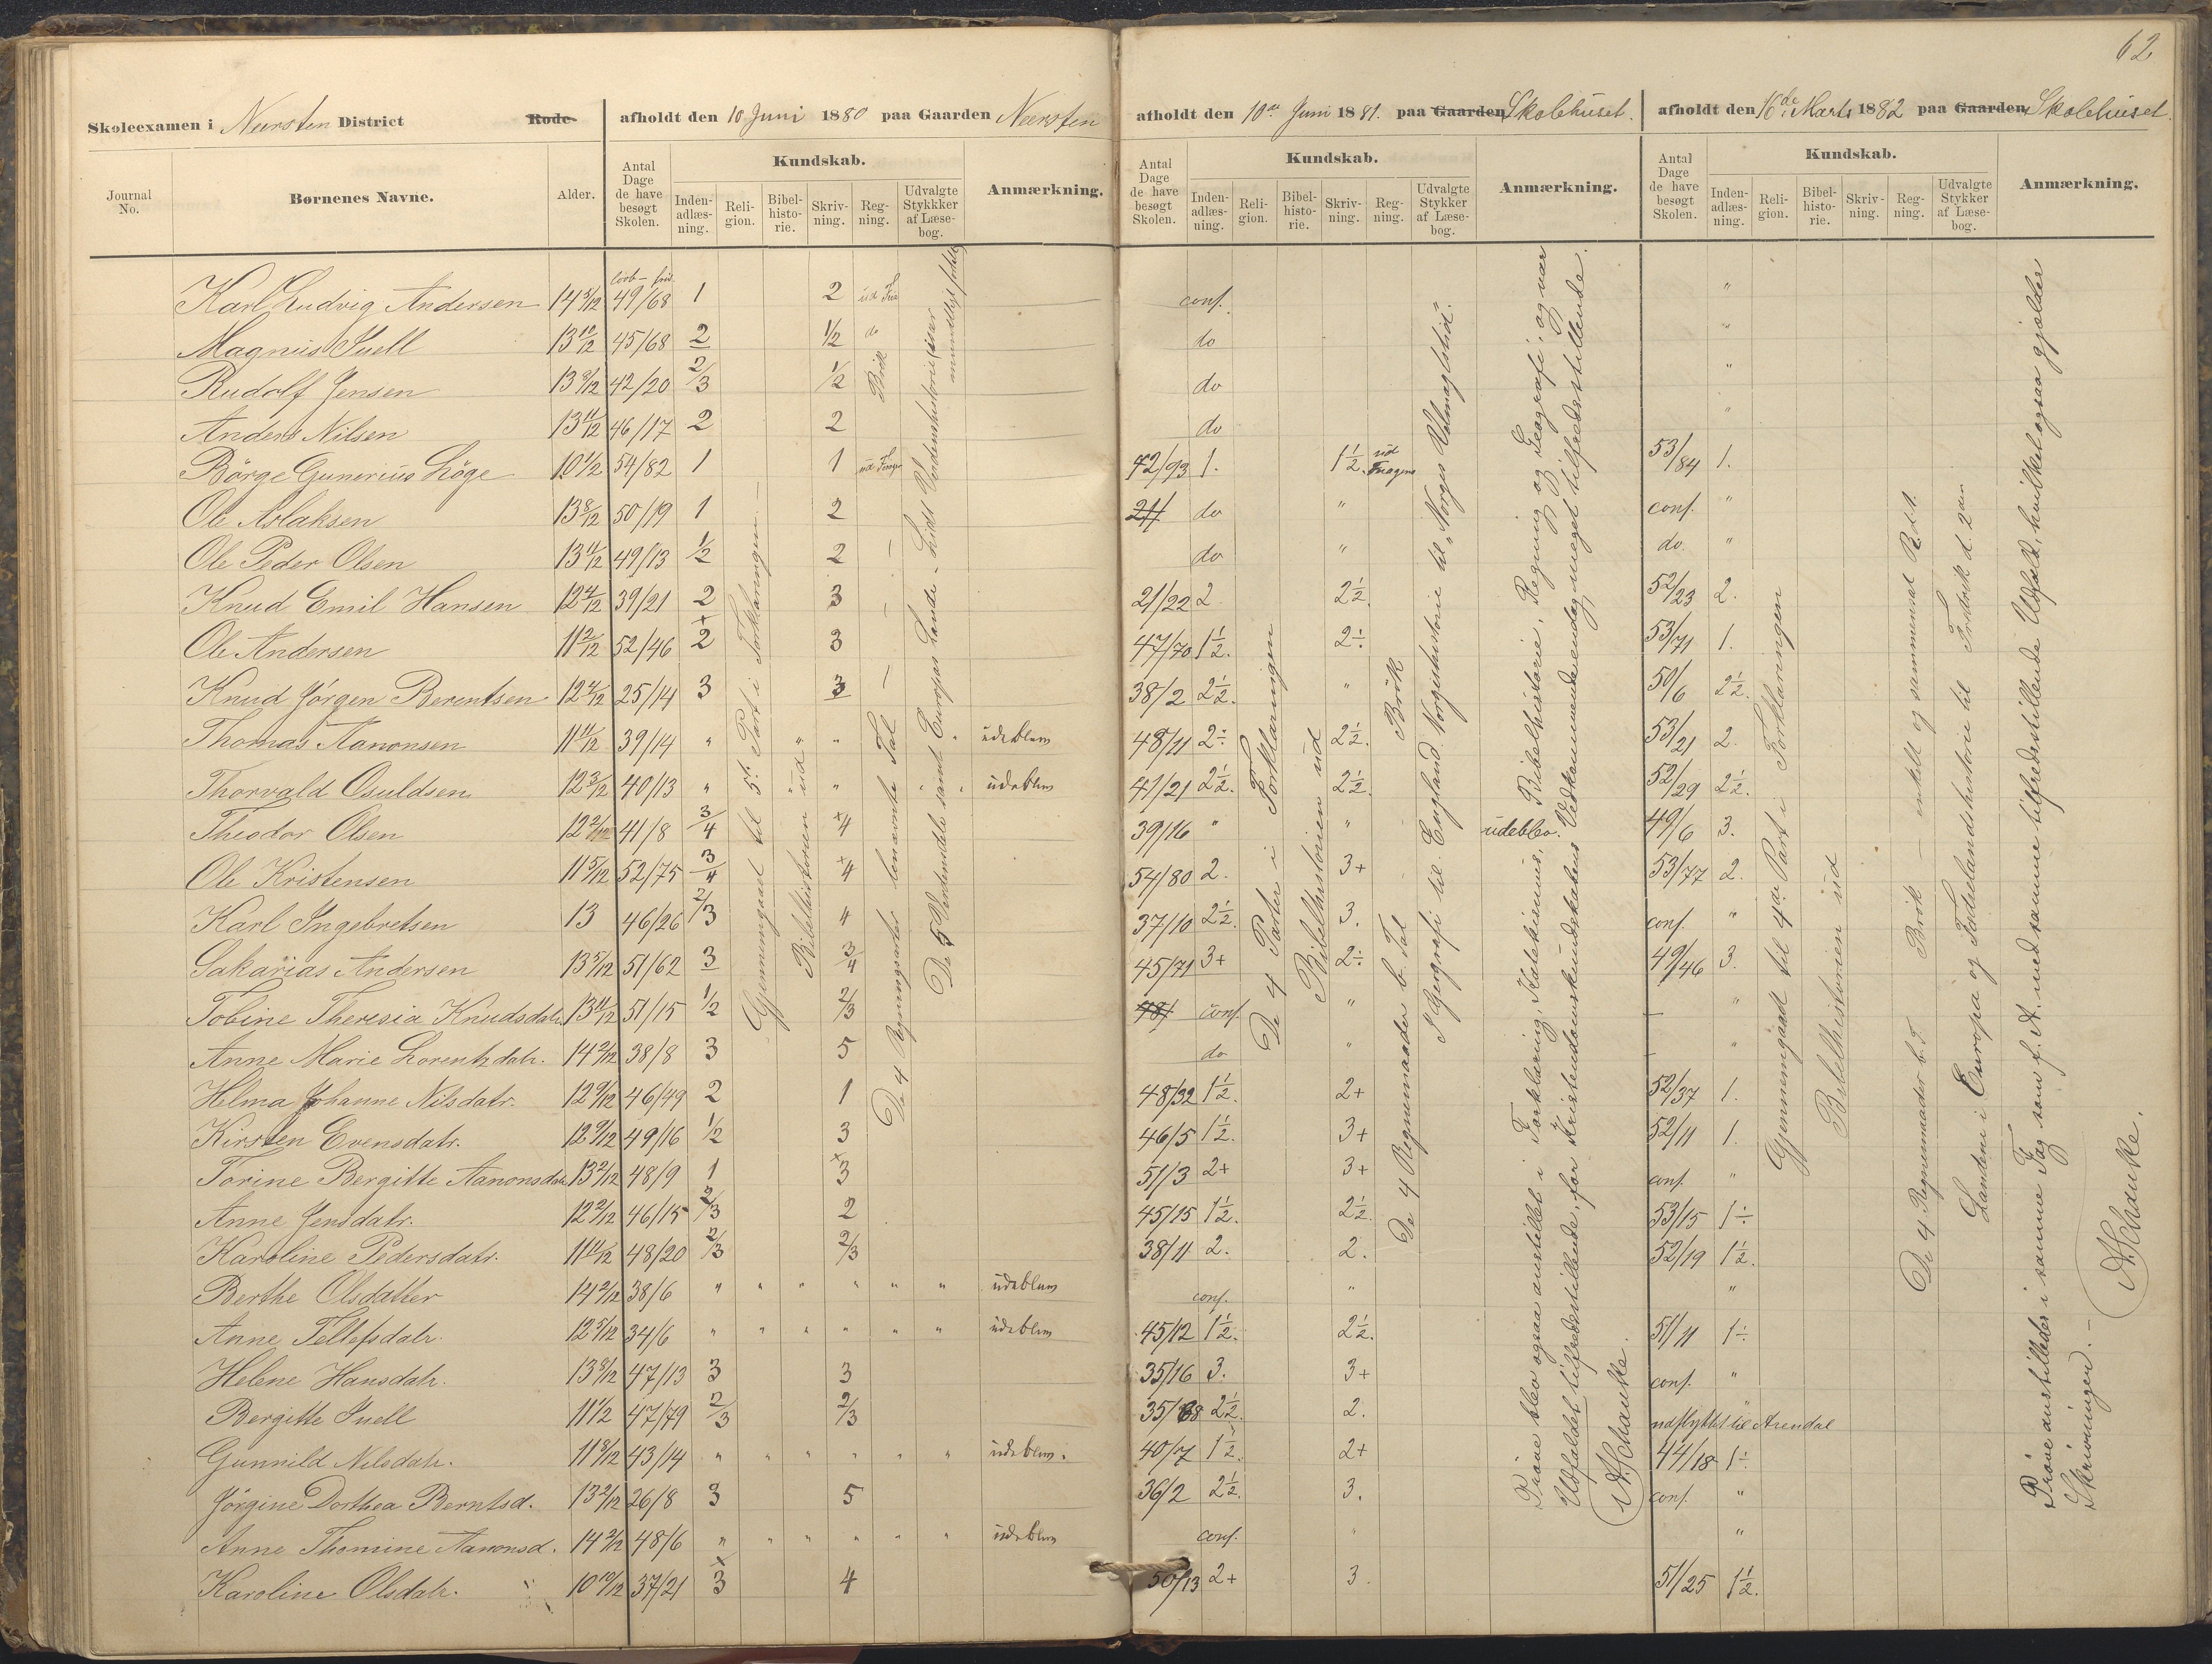 62
Skoleexamen i Neersten District Rode afholdt den 10 Juni 1880 paa Gaarden Neersten
afholdt den 10de Juni 1881. paa Gaarden Skolehuset.
afholdt den 16de Marts 1882 paa Gaarden Skolehuset.
Journal No. Børnenes Navne. Alder. Antal Dage de have besøgt Skolen. Kundskab. Inden-adlæs-ning. Reli-gion. Bibel-histo-rie. Skriv-ning. Reg-ning. Udvalgte Stykkker af Læse-bog. Anmærkning.
Antal Dage de have besøgt Skolen. Kundskab. Inden-adlæs-ning. Reli-gion. Bibel-histo-rie. Skriv-ning. Reg-ning. Udvalgte Stykker af Læse-bog. Anmærkning.
Antal Dage de have besøgt Skolen. Kundskab. Inden-adlæs-ning. Reli-gion. Bibel-histo-rie. Skriv-ning. Reg-ning. Udvalgte Stykker af Læse-bog. Anmærkning.
Karl Ludvig Andersen 14 3/12 49/68 1 2 conf. "
Magnus Juell 13 10/12 45/68 2 1/2 do do "
Rudolf Jensen 13 8/12 42/20 2/3 1/2 Brök do "
Anders Nilsen 13 11/12 46/17 2 2 do "
Börge Gunerius Löge 10 1/2 54/82 1 1 42/93 1. 1 1/2. ud 53/84 1.
Ole Aslaksen 13 8/12 50/19 1 2 21/ do " conf. "
Ole Peder Olsen 13 11/12 49/13 1/2 2 – do " do. "
Knud Emil Hansen 12 4/12 39/21 2 3 – 21/22 2 2 1/2. 52/23 2.
Ole Andersen 11 2/12 52/46 +2 3 – 47/70 1 1/2. 2÷ 53/71 1.
Knud Jörgen Berentsen 12 4/12 25/14 3 3 – 38/2 2 1/2. " 50/6 2 1/2.
Thomas Aanonsen 11 11/12 39/14 " " " " udeblem 48/11 2÷ 2 1/2. 53/21 2.
Thorvald Osuldsen 12 3/12 40/13 " " " " udeblem 47/21 2 1/2. 2 1/2. 52/29 2 1/2.
Theodor Olsen 12 2/12 41/8 3/4 +4 39/16 " " udeblev. 49/6 3.
Ole Kristensen 11 5/12 52/75 3/4 +4 54/80 2. 3+ 53/77 2.
Karl Ingebretsen 13 46/26 2/3 4 37/10 2 1/2. 3. conf. "
Sakarias Andersen 13 5/12 51/62 3 3/4 45/71 3+ 2÷ 49/46 3.
Tobine Theresia Knudsdatr. 13 11/12 51/15 1/2 2/3 48/ conf. " – "
Anne Marie Lorentzdatr. 14 2/12 38/8 3 5 do " – "
Helma Johanne Nilsdatr. 12 9/12 46/49 2 1 48/32 1 1/2. 2+ 52/37 1.
Kirsten Evensdatr. 12 9/12 49/16 1/2 3 46/5 1 1/2. 3+ 52/11 1.
Torine Bergitte Aanonsdatr 13 2/12 48/9 1 +3 51/3 2+ 3+ conf. "
Anne Jensdatr. 12 2/12 46/15 2/3 2 45/15 1 1/2. 2 1/2. 53/15 1÷
Karoline Pedersdatr. 11 11/12 48/20 2/3 2/3 38/11 2. 2. 52/19 1 1/2.
Berthe Olsdatter 14 2/12 38/6 " " " " " " udeblem conf. " "
Anne Tellefsdatr. 12 5/12 34/6 " " " " " " udeblem 45/12 1 1/2. 2 1/2. 51/11 1÷
Helene Hansdatr. 13 8/12 47/13 3 3 35/16 3. 3+ conf. "
Bergitte Juell 11 1/2 47/79 2/3 2/3 35/68 2 1/2. 2. udflyttet til Arendal
Gunnild Nilsdatr. 11 8/12 43/14 " " " " " " udeblem. 40/7 1 1/2. 2+ 44/18 1÷
Jörgine Dorthea Berntsd. 13 2/12 26/8 3 5 36/2 2 1/2. 3. conf. "
Anne Thomine Aanonsd. 14 2/12 48/6 " " " " " " udeblem conf. " "
Karoline Olsdatr. 10 10/12 37/21 +3 4 50/13 2+ 3. 51/25 1 1/2.
Gjennemgaaet til 5te Part i Forklaringen –
Bibelhistorien ud
De 4 Regningsarter benævnte Tal
De 5 Verdensdele samt Europas Lande – Lidt Verdenshistorie
De 4 Parter i Forklaringen
Bibelhistorien ud
De 4 Regnemaader b. Tal Brök
I Geografi til England. Norgeshistorie til "Norges Velmagtstid".
Prøve blev ogsaa anstillet i Forklaring, Katekismus, Bibelhistorie, Regning og Geografi, og var
Udfaldet tilfredsstillende, for Kristendomskundskabens Vedkommende endog meget tilfredsstillende.
A. Schanke.
Gjennemgaaet til 4de Part i Forklaringen
Bibelhistorien ud
De 4 Regnemaader b. T. Brök – enkelt og sammensat R. d. t.
Landene i Europa og Fædrelandshistorie til Fredrik d. 2den
Prøve anstilledes i samme Fag som f. A. med samme tilfredsstillende Udfald, hvilket ogsaa gjælder
Skrivningen. –
A. Schanke.